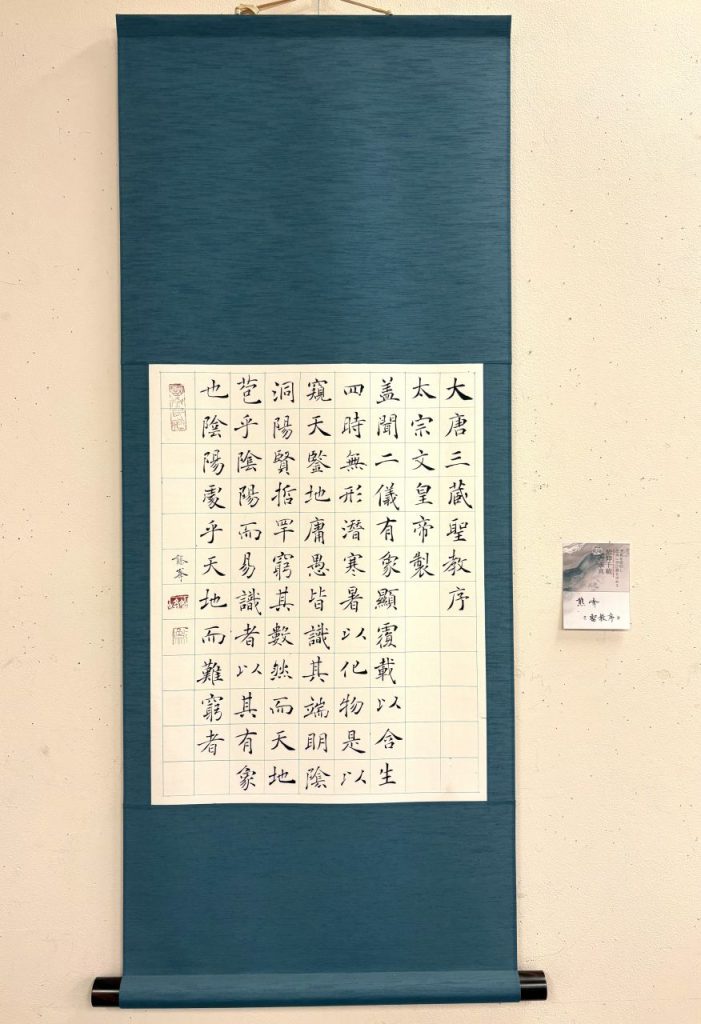 大唐三藏聖教序
太宗文皇帝製
盖聞二儀有象顯覆載以含生
四時無形潛寒暑以化物是以
窺天鑒地庸愚皆識其端明陰
洞陽賢哲罕窮其數然而天地
苞乎陰陽而易識者以其有象
也陰陽處乎天地而難窮者
熊峯
熊峰
《聖教序》